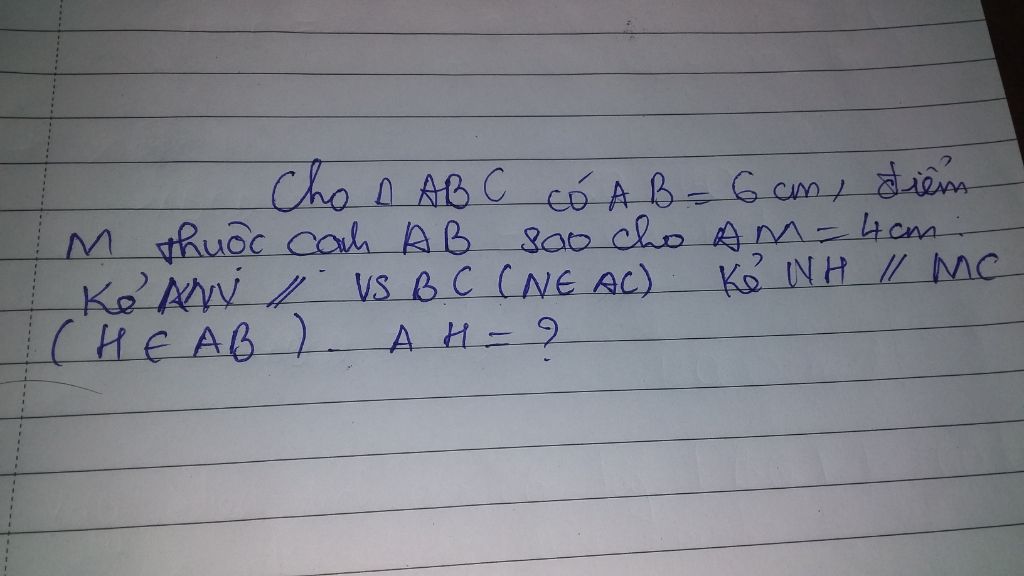 Cho Δ ABC có AB = 6 cm, điểm
M thuộc cạnh AB sao cho AM = 4 cm.
Kẻ ANN // VS BC (N ∈ AC). Kẻ NH // MC
(H ∈ AB). AH = ?